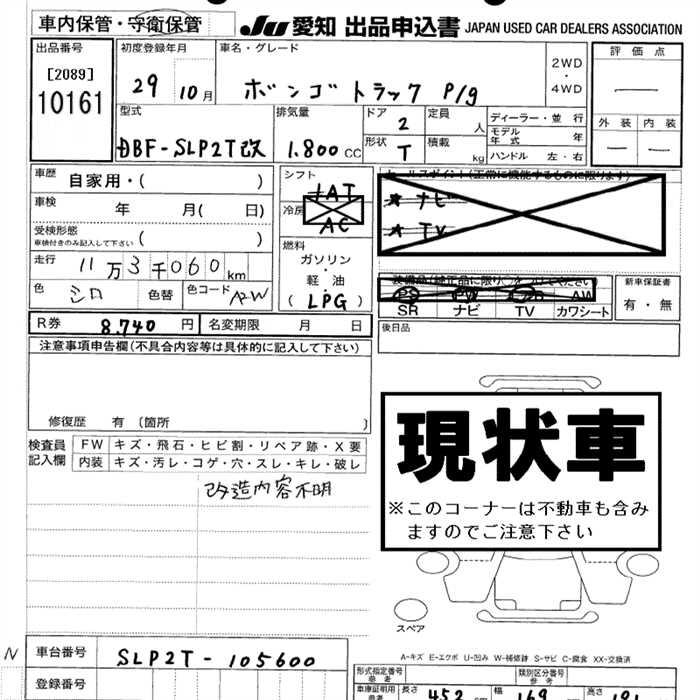 車内保管・守衛保管
JU 愛知 出品申込書 JAPAN USED CAR DEALERS ASSOCIATION
出品番号
[2089]
10161
初度登録年月
29 10月
車名・グレード
ボンゴトラック P/g
2WD
・
4WD
評価点
外装 内装
型式
DBF-SLP2T改
排気量
1.800cc
ドア
2
形状
T
定員
人
積載
kg
ディーラー・並行
モデル年式 年
ハンドル 左・右
車歴
自家用・( )
車検 年 月( 日)
受検形態
車検付きのみ記入して下さい ( )
走行 11万3千060km
色 シロ
色替
色コード A2W
シフト
IAT
冷房
AC
燃料
ガソリン
・
軽油
(LPG)
セールスポイント(正常に機能するものに限ります)
★ナビ
★TV
装備品(純正品に限り○をつけてください)
PS PW AW
SR ナビ TV カワシート
新車保証書
有・無
R券 8,740円
名変期限 月 日
後日品
注意事項申告欄(不具合内容等は具体的に記入して下さい)
修復歴 有(箇所 )
検査員記入欄
FW キズ・飛石・ヒビ割・リペア跡・X要
内装 キズ・汚レ・コゲ・穴・スレ・キレ・破レ
改造内容不明
現状車
※このコーナーは不動車も含み
ますのでご注意下さい
スペア
A-キズ E-エクボ U-凹み W-補修跡 S-サビ C-腐食 XX-交換済
N
車台番号 SLP2T-105600
登録番号
形式指定番号
参考
類別区分番号
参考
車庫証明用
参考
長さ 452
幅 169
高さ 191